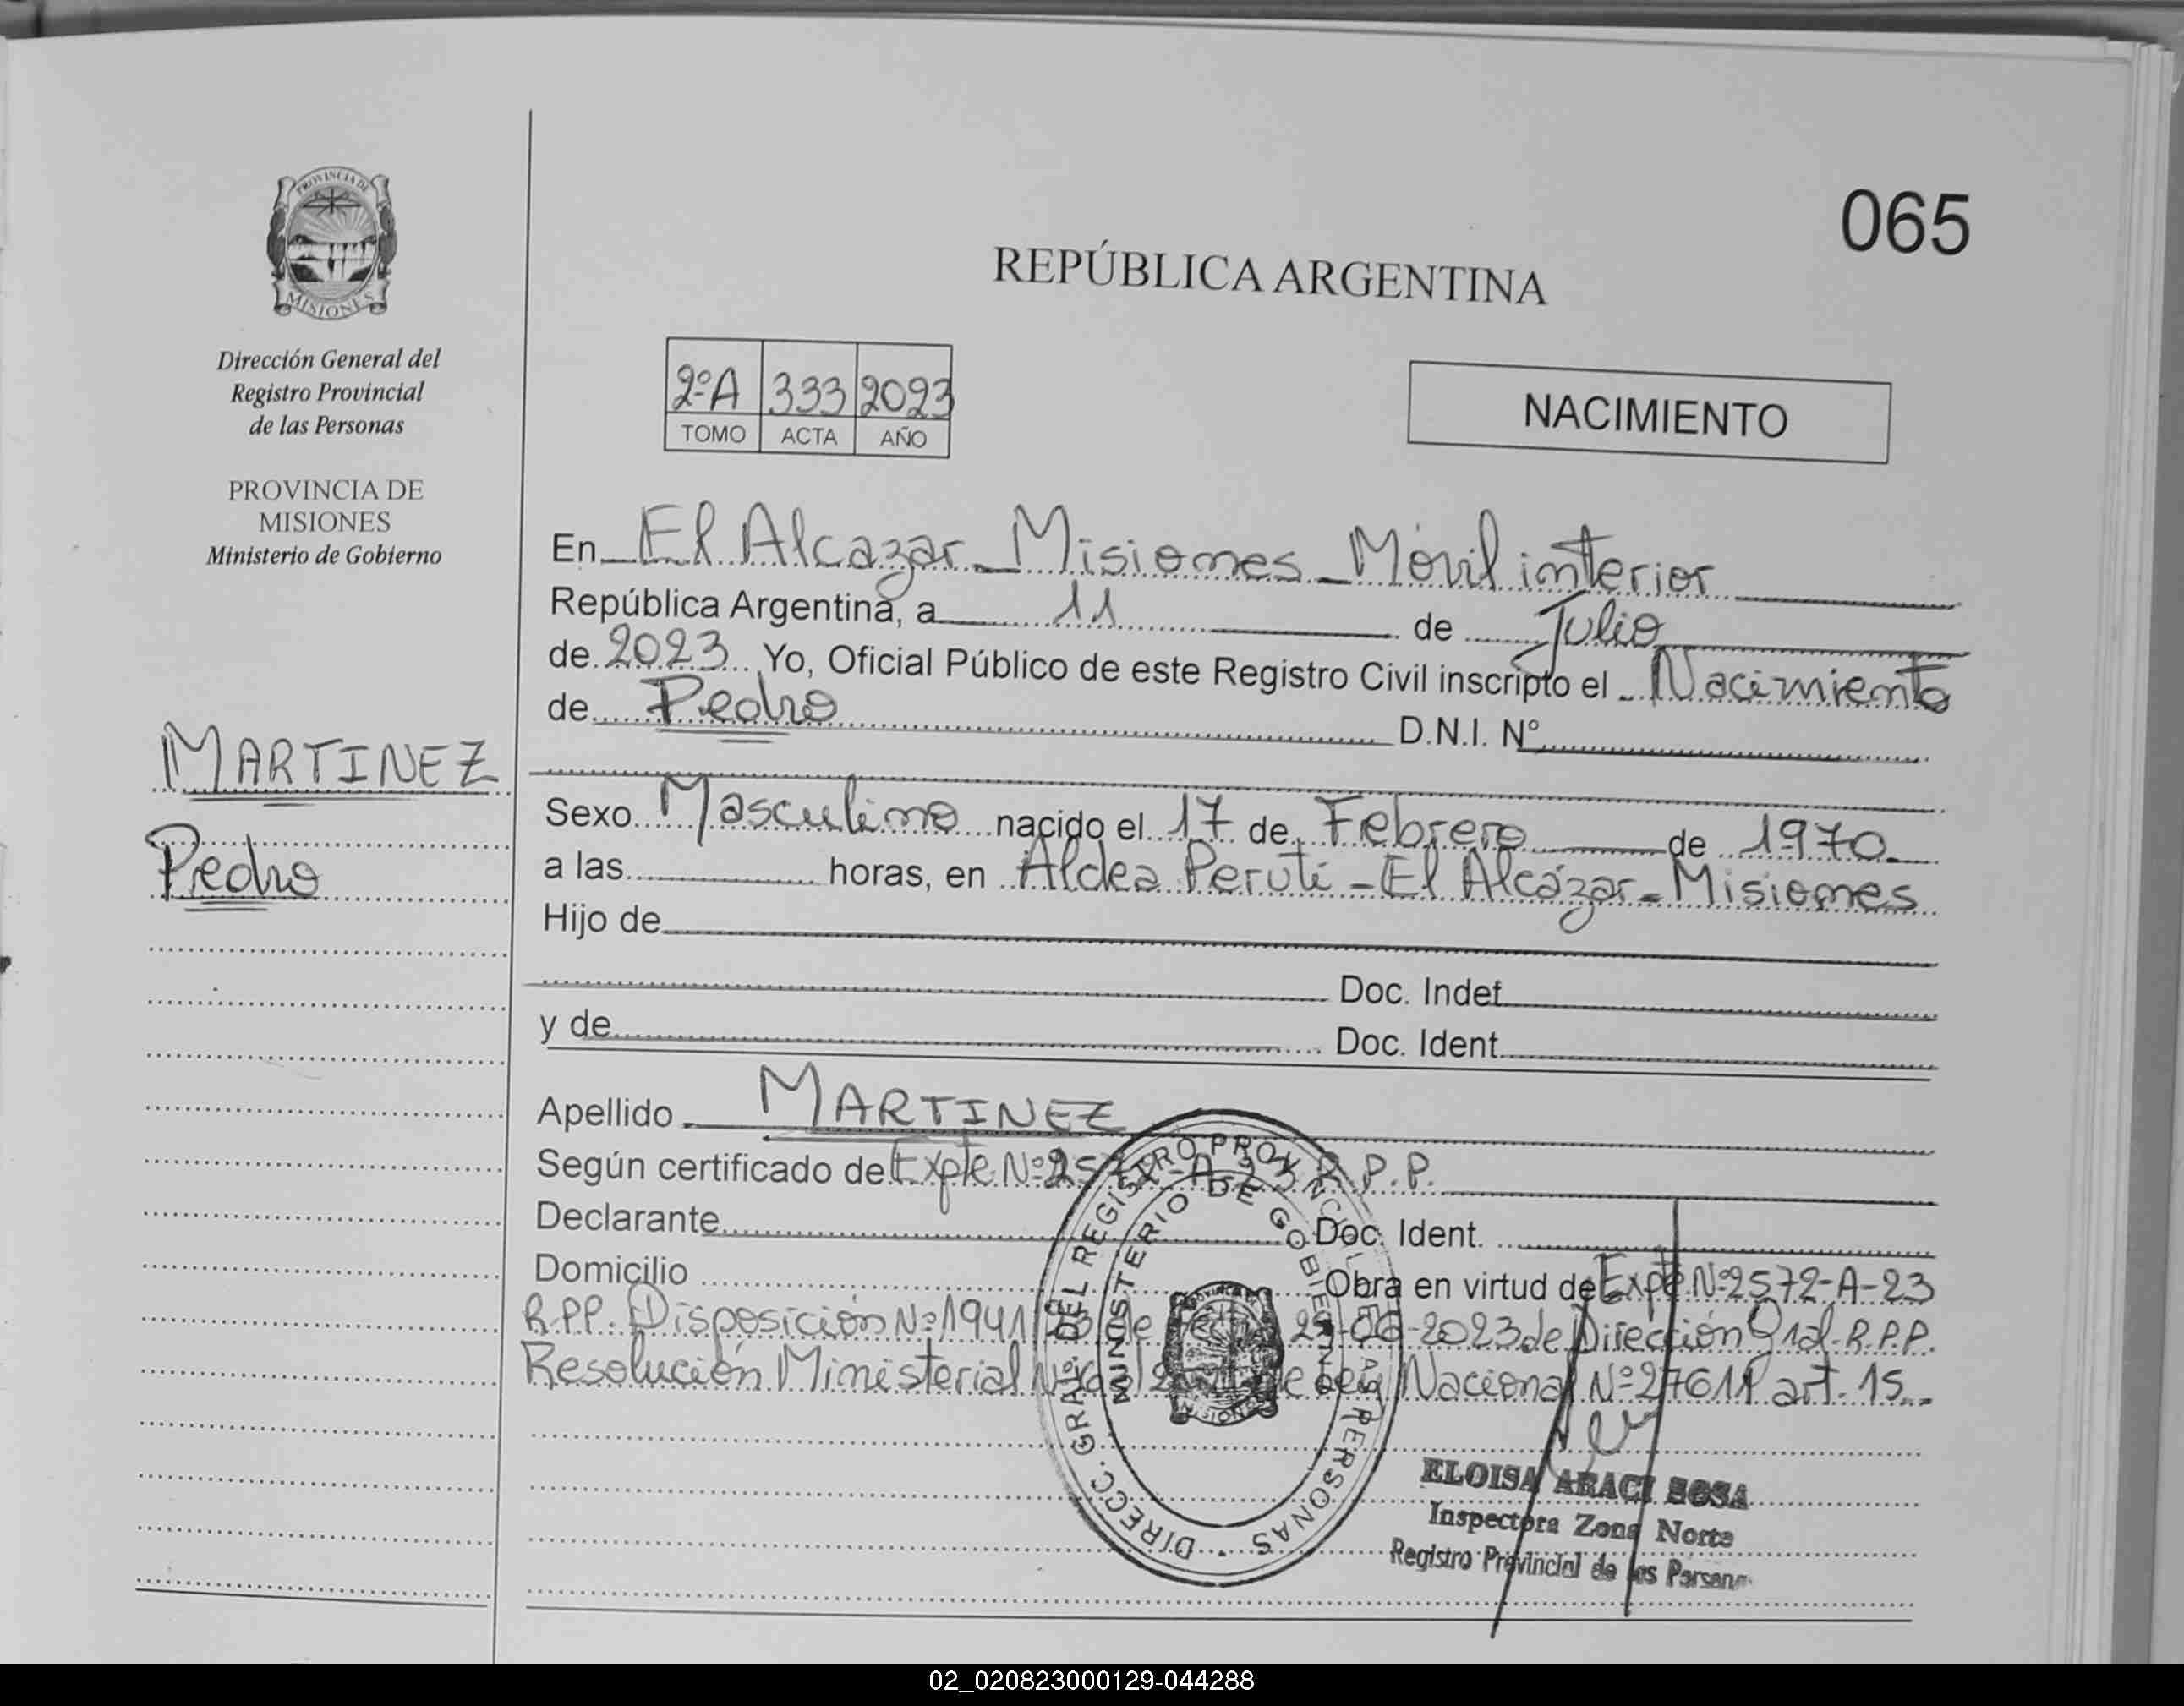 PROVINCIA DE
MISIONES
Dirección General del
Registro Provincial
de las Personas
PROVINCIA DE
MISIONES
Ministerio de Gobierno
MARTINEZ
Pedro
065
REPÚBLICA ARGENTINA
2ºA 333 2023
TOMO ACTA AÑO
NACIMIENTO
En El Alcazar - Misiones - Móvil interior
República Argentina, a 11 de Julio
de 2023 Yo, Oficial Público de este Registro Civil inscripto el Nacimiento
de Pedro D.N.I. Nº
Sexo Masculino nacido el 17 de Febrero de 1970
a las horas, en Aldea Perutí - El Alcázar - Misiones
Hijo de
Doc. Indef
y de Doc. Ident
Apellido MARTINEZ
Según certificado de Expte Nº 2572-A-23 R.P.P.
Declarante Doc. Ident.
Domicilio Obra en virtud de Expte Nº 2572-A-23
R.P.P. Disposición Nº 1941 de -06-2023 de Dirección Gral. R.P.P.
Resolución Ministerial Nº de Ley Nacional Nº 27611 art. 15
DIRECC. GRAL. DEL REGISTRO PROVINCIAL DE LAS PERSONAS
MINISTERIO DE GOBIERNO
PROVINCIA DE
MISIONES
ELOISA ARACI SOSA
Inspectora Zona Norte
Registro Provincial de las Personas
02_020823000129-044288